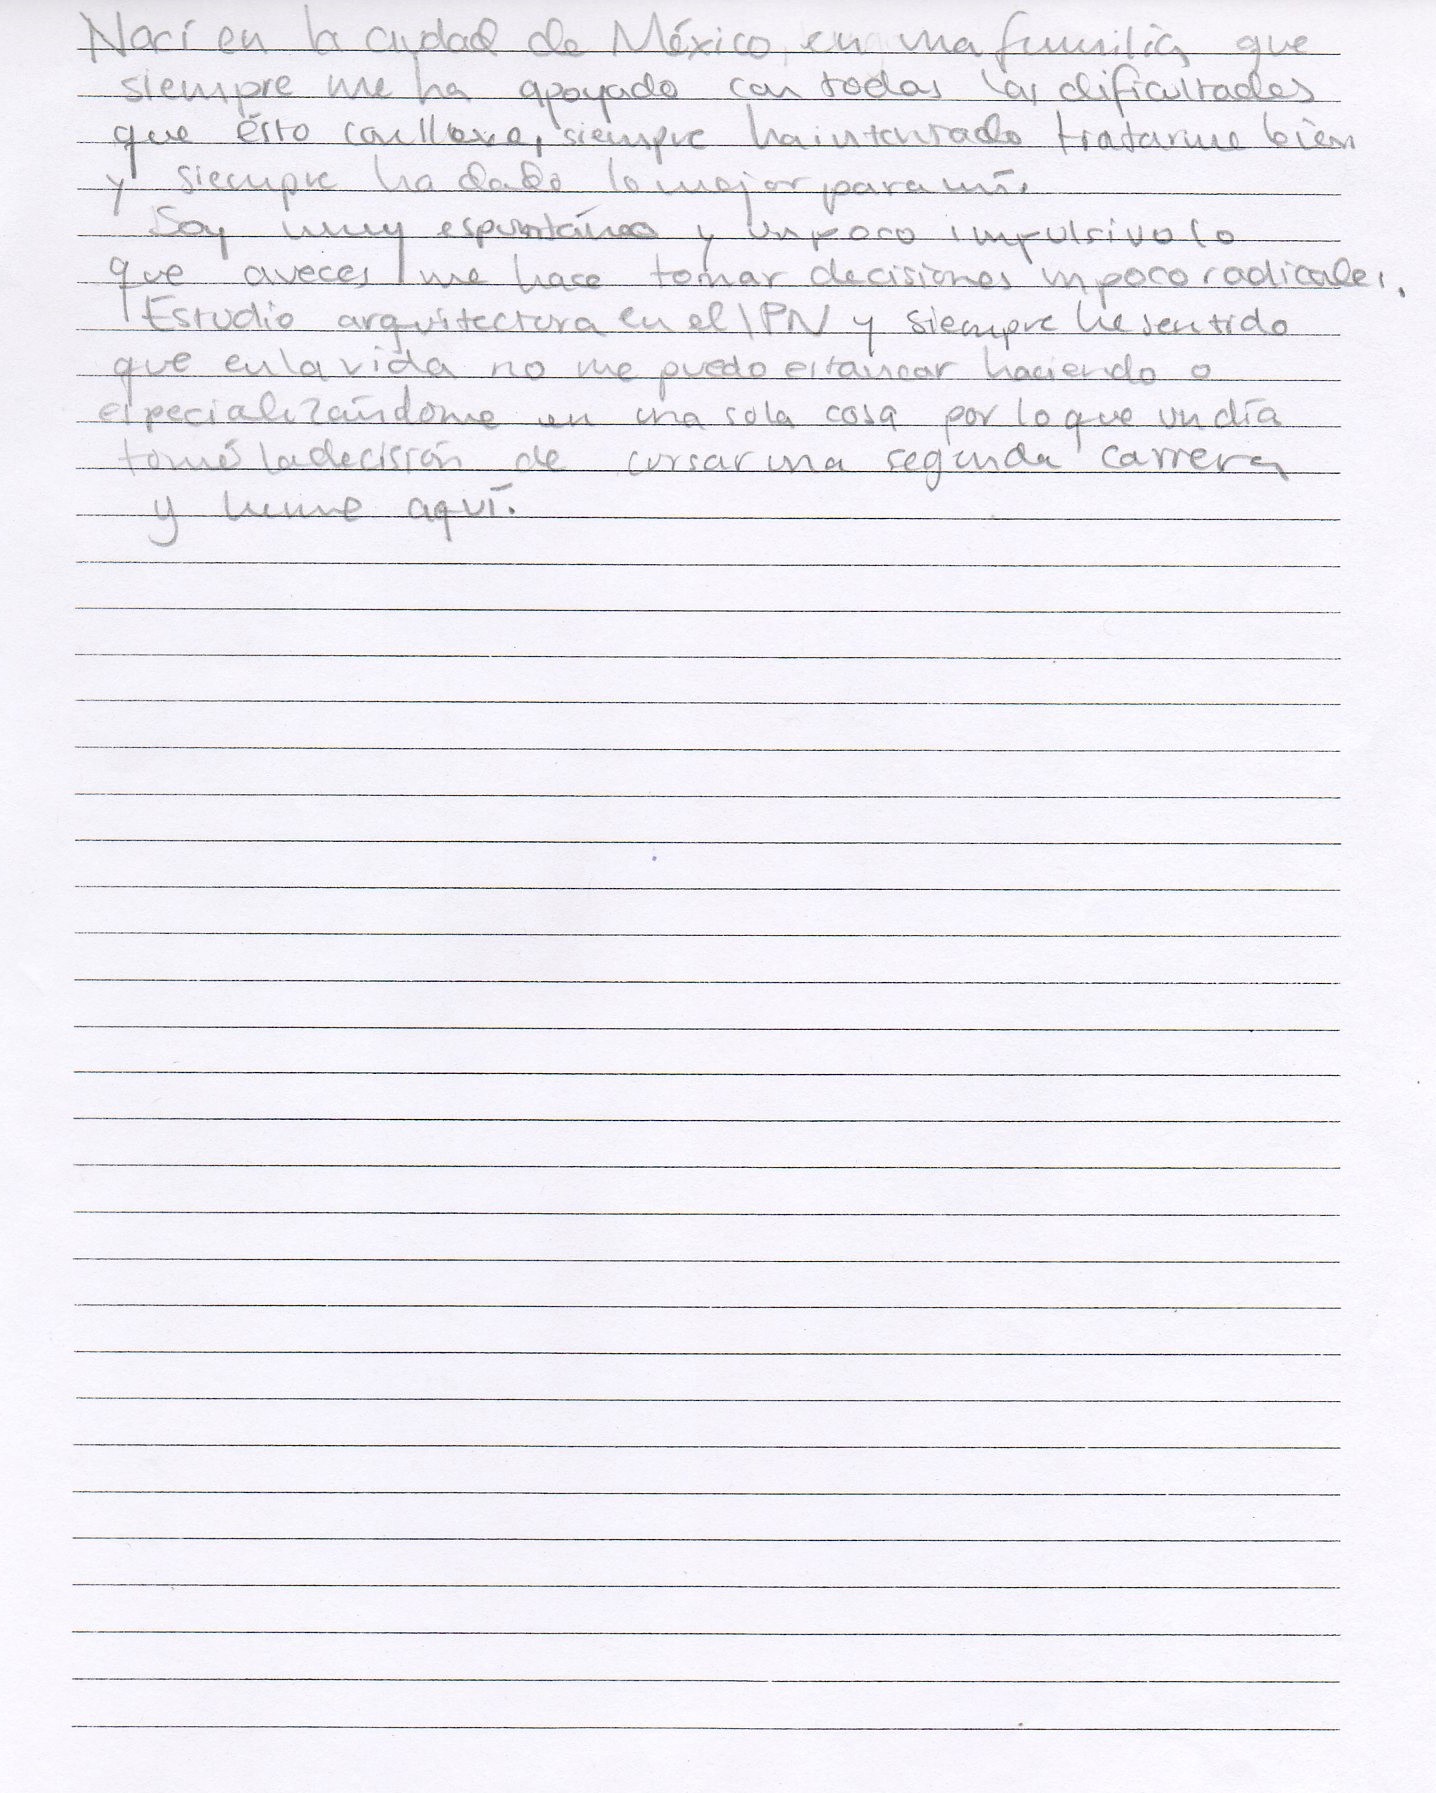 Nací en la ciudad de México, en una familia, que
siempre me ha apoyado con todas las dificultades
que ésto conlleva, siempre ha intentado tratarme bien
y siempre ha dado lo mejor para mí.
Soy muy espontáneo y un poco impulsivo lo
que aveces me hace tomar decisiones un poco radicales.
Estudio arquitectura en el IPN y siempre he sentido
que en la vida no me puedo estancar haciendo o
especializándome en una sola cosa por lo que un día
tomé la decisión de cursar una segunda carrera
y heme aquí.